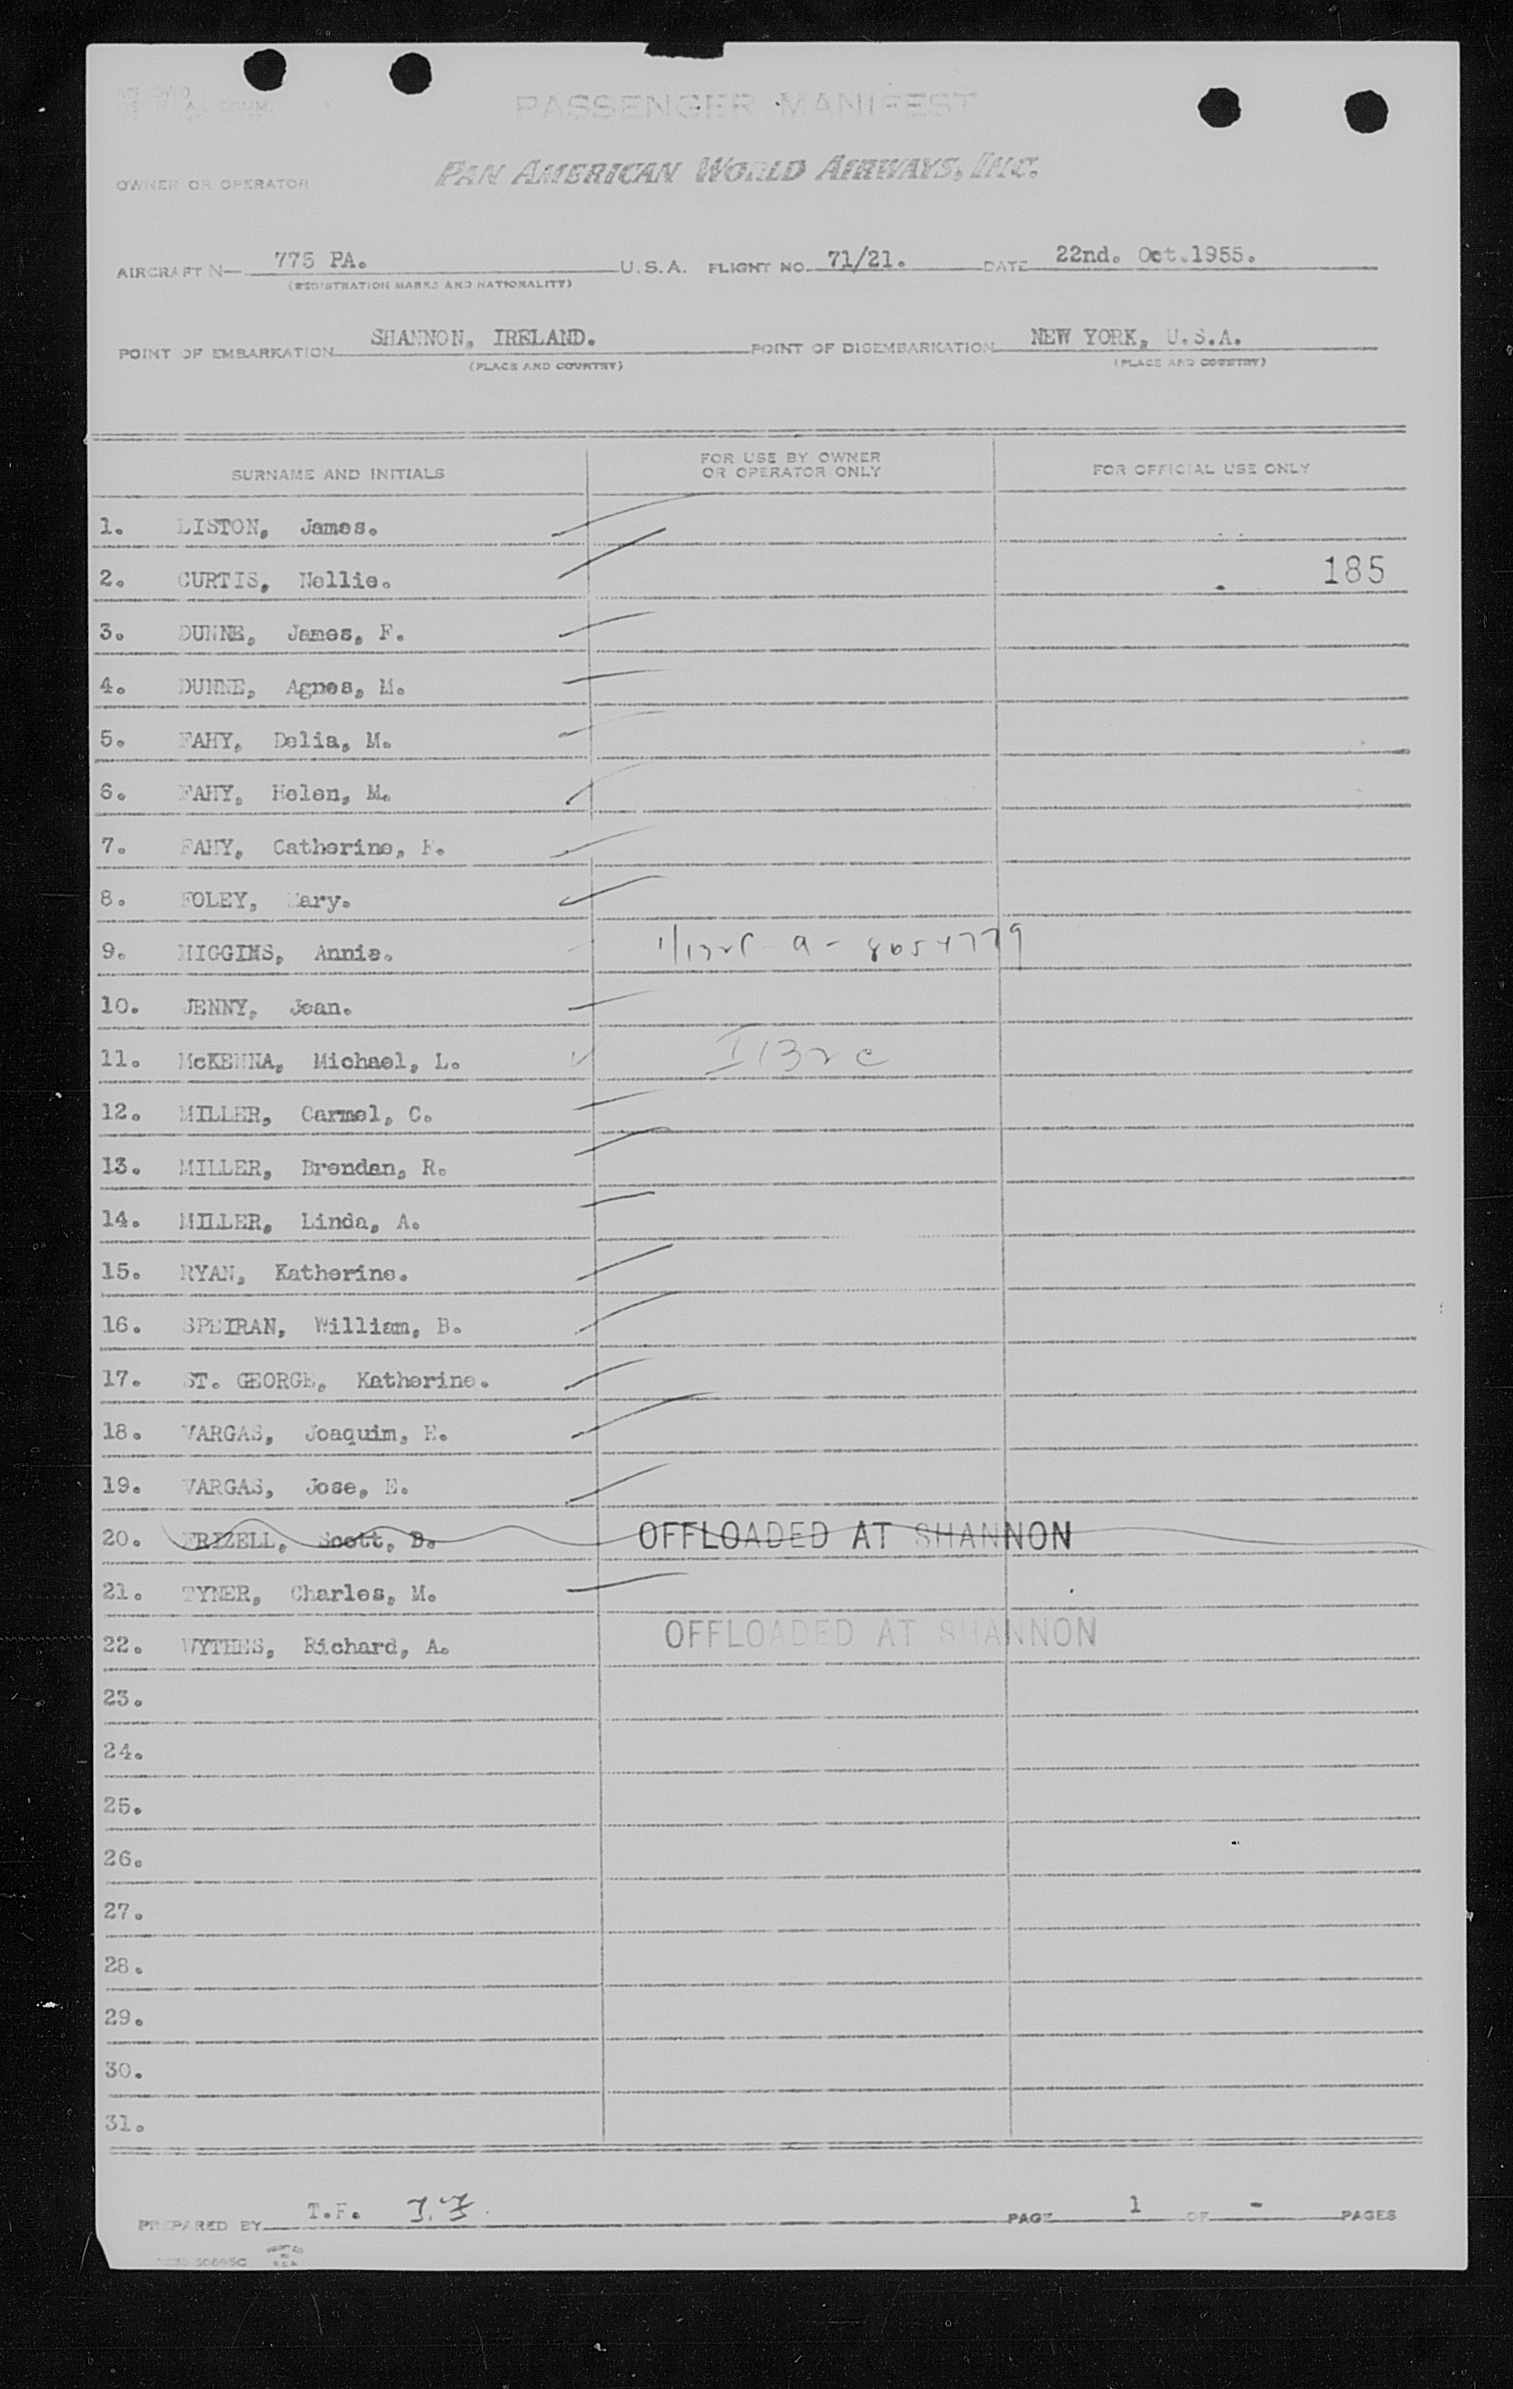 PASSENGER MANIFEST
OWNER OR OPERATOR PAN AMERICAN WORLD AIRWAYS, INC.
AIRCRAFT N— 775 PA. U.S.A. FLIGHT NO. 71/21. DATE 22nd. Oct.1955.
(REGISTRATION MARKS AND NATIONALITY)
POINT OF EMBARKATION SHANNON, IRELAND. POINT OF DISEMBARKATION NEW YORK, U.S.A.
(PLACE AND COUNTRY) (PLACE AND COUNTRY)
SURNAME AND INITIALS FOR USE BY OWNER OR OPERATOR ONLY FOR OFFICIAL USE ONLY
1. LISTON, James.
2. CURTIS, Nellie. 185
3. DUNNE, James, F.
4. DUNNE, Agnes, M.
5. FAHY, Delia, M.
6. FAHY, Helen, M.
7. FAHY, Catherine,
8. FOLEY, Mary.
9. HIGGINS, Annie.
10. JENNY, Jean.
11. McKENNA, Michael, L. I 132 c
12. MILLER, Carmel, C.
13. MILLER, Brendan, R.
14. MILLER, Linda, A.
15. RYAN, Katherine.
16. SPEIRAN, William, B.
17. ST. GEORGE, Katherine.
18. VARGAS, Joaquim, E.
19. VARGAS, Jose, E.
20. FRIZELL, Scott, D. OFFLOADED AT SHANNON
21. TYNER, Charles, M.
22. WYTHES, Richard, A. OFFLOADED AT SHANNON
23.
24.
25.
26.
27.
28.
29.
30.
31.
PREPARED BY T.F. T.F. PAGE 1 OF - PAGES